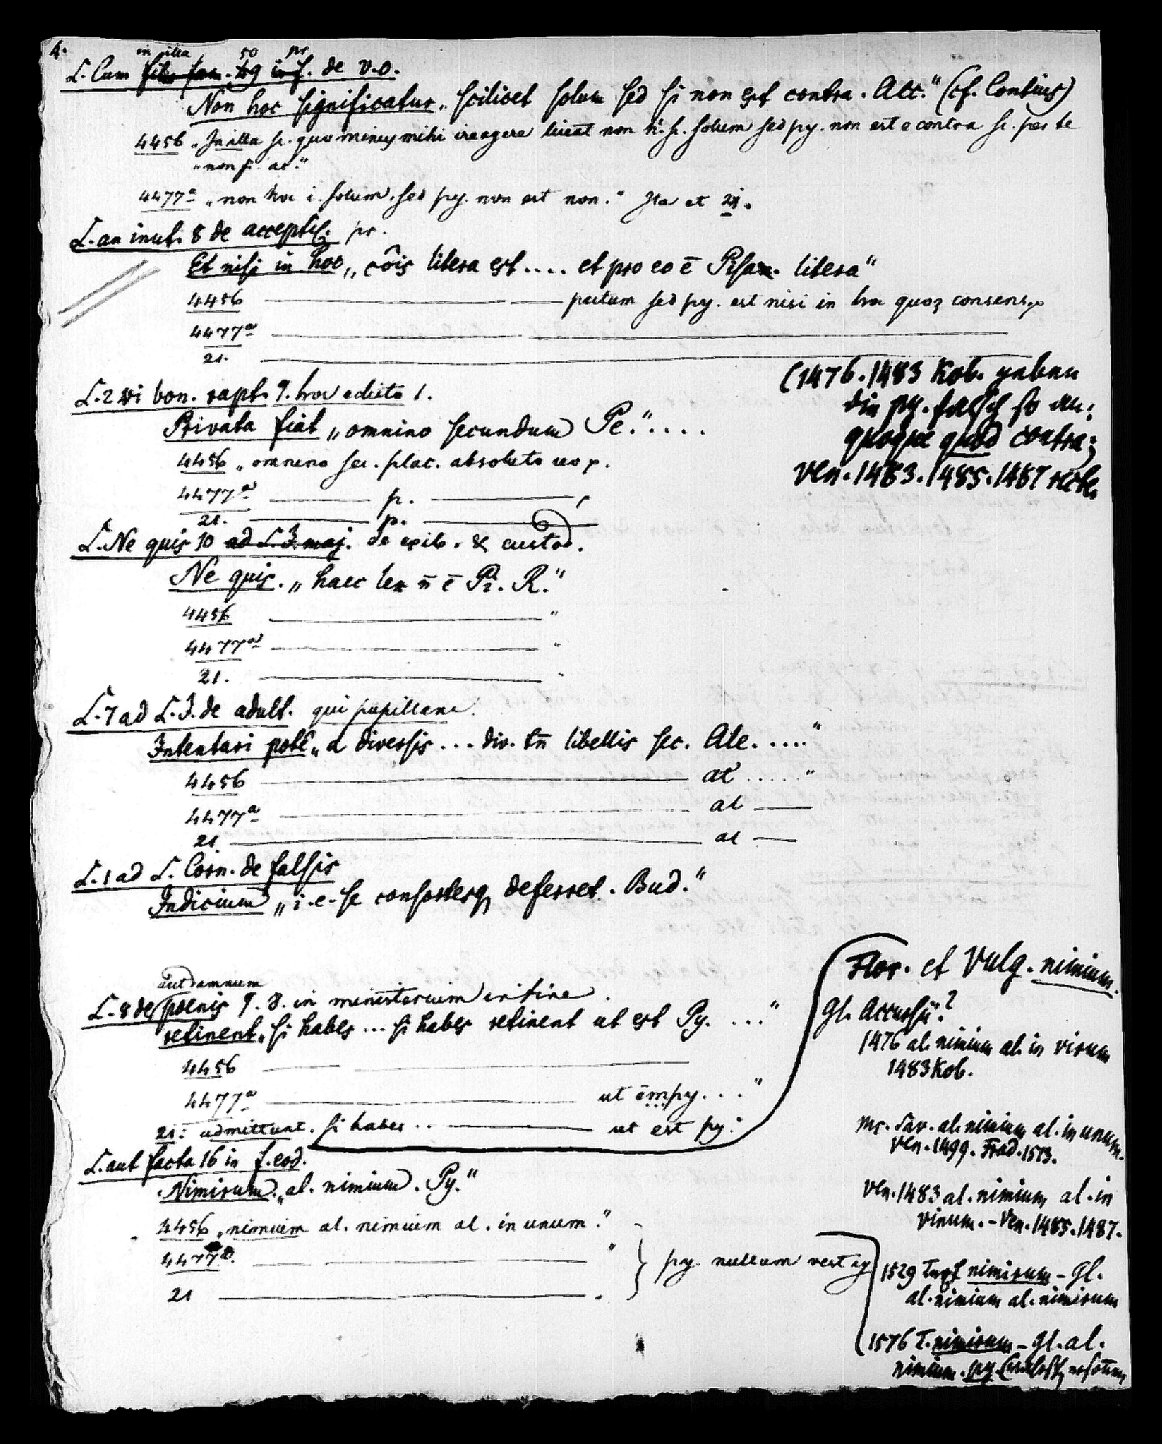 4.
in illa 50 pr
L. Cum filio fam. 119 in f. de v. o.
Non hoc significatur „scilicet solum sed si non est contra. Acc.“ (cf. Contius)
4456 „In illa sc. quo minus mihi ire agere liceat non h. s. solum sed py. non est e contra sc. per te
„non fi. ac.“
4477a „non hoc i. solum. sed py. non est non.“ Ita et 21.
L. an inut. 8 de acceptil. pr.
Et nisi in hoc „cōis litera est .... et pro eo ē Pisan. litera“
4456 ——— pactum sed py. est nisi in hoc quoq consens.
4477a ———
21. ———
L. 2 vi bon. rapt. §. hoc edicto 1.
Privata fiat „omnino secundum Pe.“....
4456 „omnino sec. plac. absoluto
4477a ——— p. ———
21. ——— p. ———
(1476. 1483 Kob. geben
die py. falsch so an:
quoque quod contra;
Ven. 1483. 1485. 1487 recte.
L. Ne quis 10 ad L. J. maj. de exib. & custod.
Ne quis. „haec lex n̄ ē Pi. R.“
4456 ——— “
4477a ——— “
21. ——— “
L. 7 ad L. J. de adult. qui pupillam.
Intentari potē „a diversis ... div. tn̄ libellis sec. Ale. .....“
4456 ——— al .....“
4477a ——— al ——
21 ——— al ——
L. 1 ad L. Corn. de falsis
Indicium „i. e. se consortesq deferret. Bud.“
aut damnum
L. 8 de poenis §. 8. in ministerium in fine.
retinent „si habes ... si habes retinent ut est Py. ...“
4456 ———
4477a ——— ut ēm py. ...“
21. admittunt. si habes .. ——— ut est py.“
Flor. et Vulg. nimium.
Gl. Accursii?
1476 al. nimium al. in virum
1483 Kob.
Mc. Sav. al. nimium al. in unum.
Ven. 1499. Frad. 1513.
Ven. 1483 al. nimium al. in
vinum. – Ven. 1485. 1487.
L. aut facta 16 in f. eod.
Nimirum „al. nimium. Py.“
4456 „nimium al. nimium al. in unum.“
4477a. ——— “
21 ——— .
} py. nullum
1529 Text nimirum – Gl.
al. nimium al. nimirum
1576 T. nimirum – Gl. al.
nimium. py.